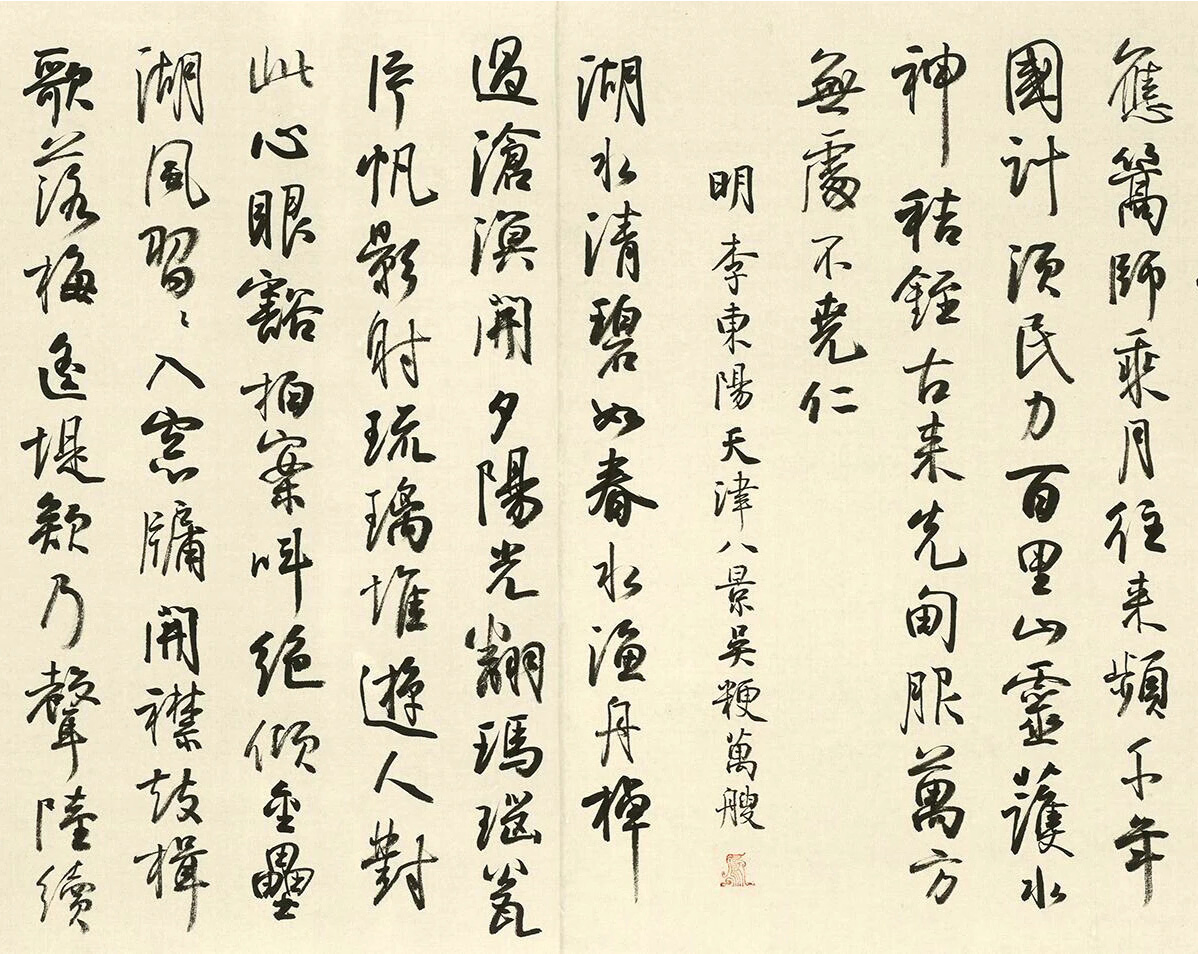 應篙師乘月往来頻千年
國計須民力百里山靈護水
神秸銍古来先甸服萬方
無處不堯仁
明李東陽天津八景吳粳萬艘
湖水清碧如春水漁舟棹
過滄溟開夕陽光翻瑪瑙瓮
片帆影射琉璃堆遊人對
此心眼豁拍案叫絶傾金罍
湖風習〻入窓牖開襟鼓楫
歌落梅遙堤欸乃聲陸續